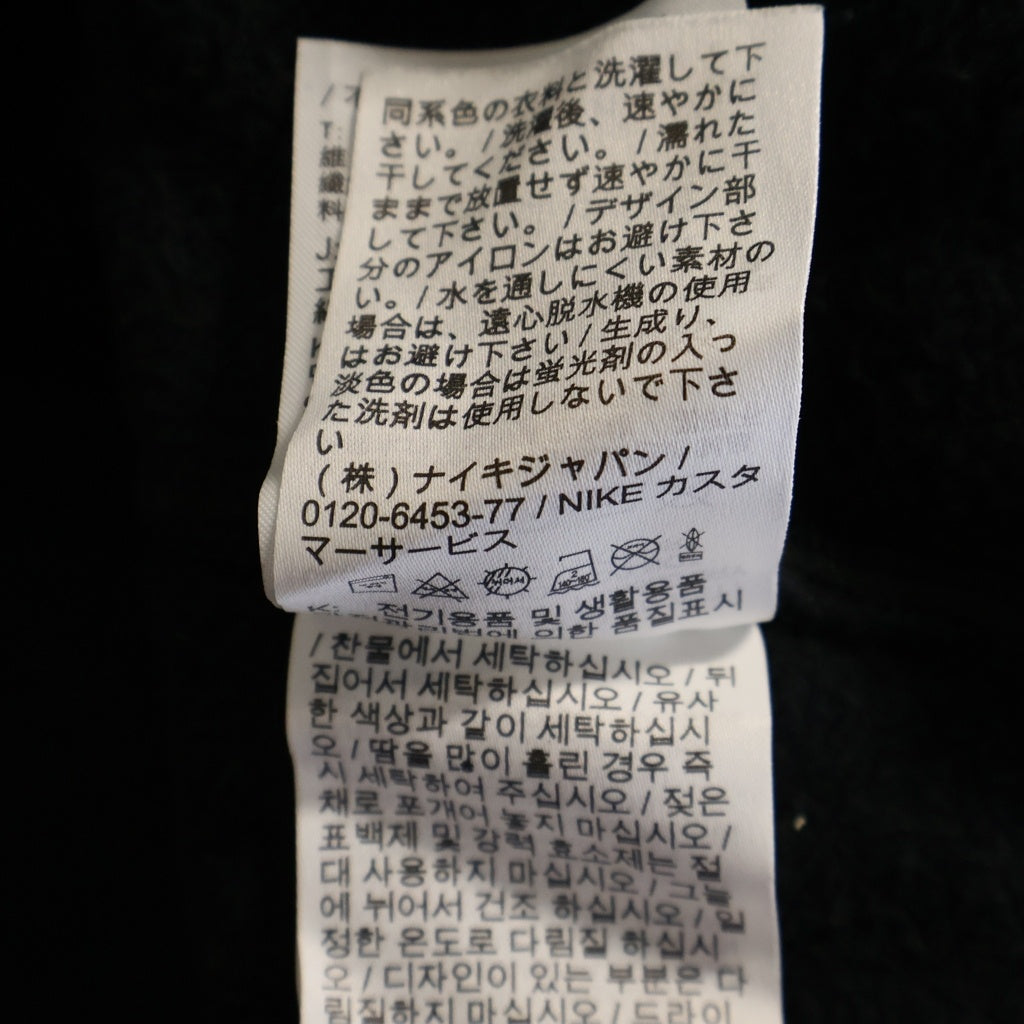 同系色の衣料と洗濯して下
さい。/洗濯後、速やかに
干してください。/濡れた
ままで放置せず速やかに干
して下さい。/デザイン部
分のアイロンはお避け下さ
い。/水を通しにくい素材の
場合は、遠心脱水機の使用
はお避け下さい/生成り、
淡色の場合は蛍光剤の入っ
た洗剤は使用しないで下さ
い
(株)ナイキジャパン/
0120-6453-77/NIKE カスタ
マーサービス
K: 전기용품 및 생활용품
의한 품질표시
/찬물에서 세탁하십시오/뒤
집어서 세탁하십시오/유사
한 색상과 같이 세탁하십시
오/땀을 많이 흘린 경우 즉
시 세탁하여 주십시오/젖은
채로 포개어 놓지 마십시오/
표백제 및 강력 효소제는 절
대 사용하지 마십시오/그늘
에 뉘어서 건조 하십시오/일
정한 온도로 다림질 하십시
오/디자인이 있는 부분은 다
림질하지 마십시오/드라이